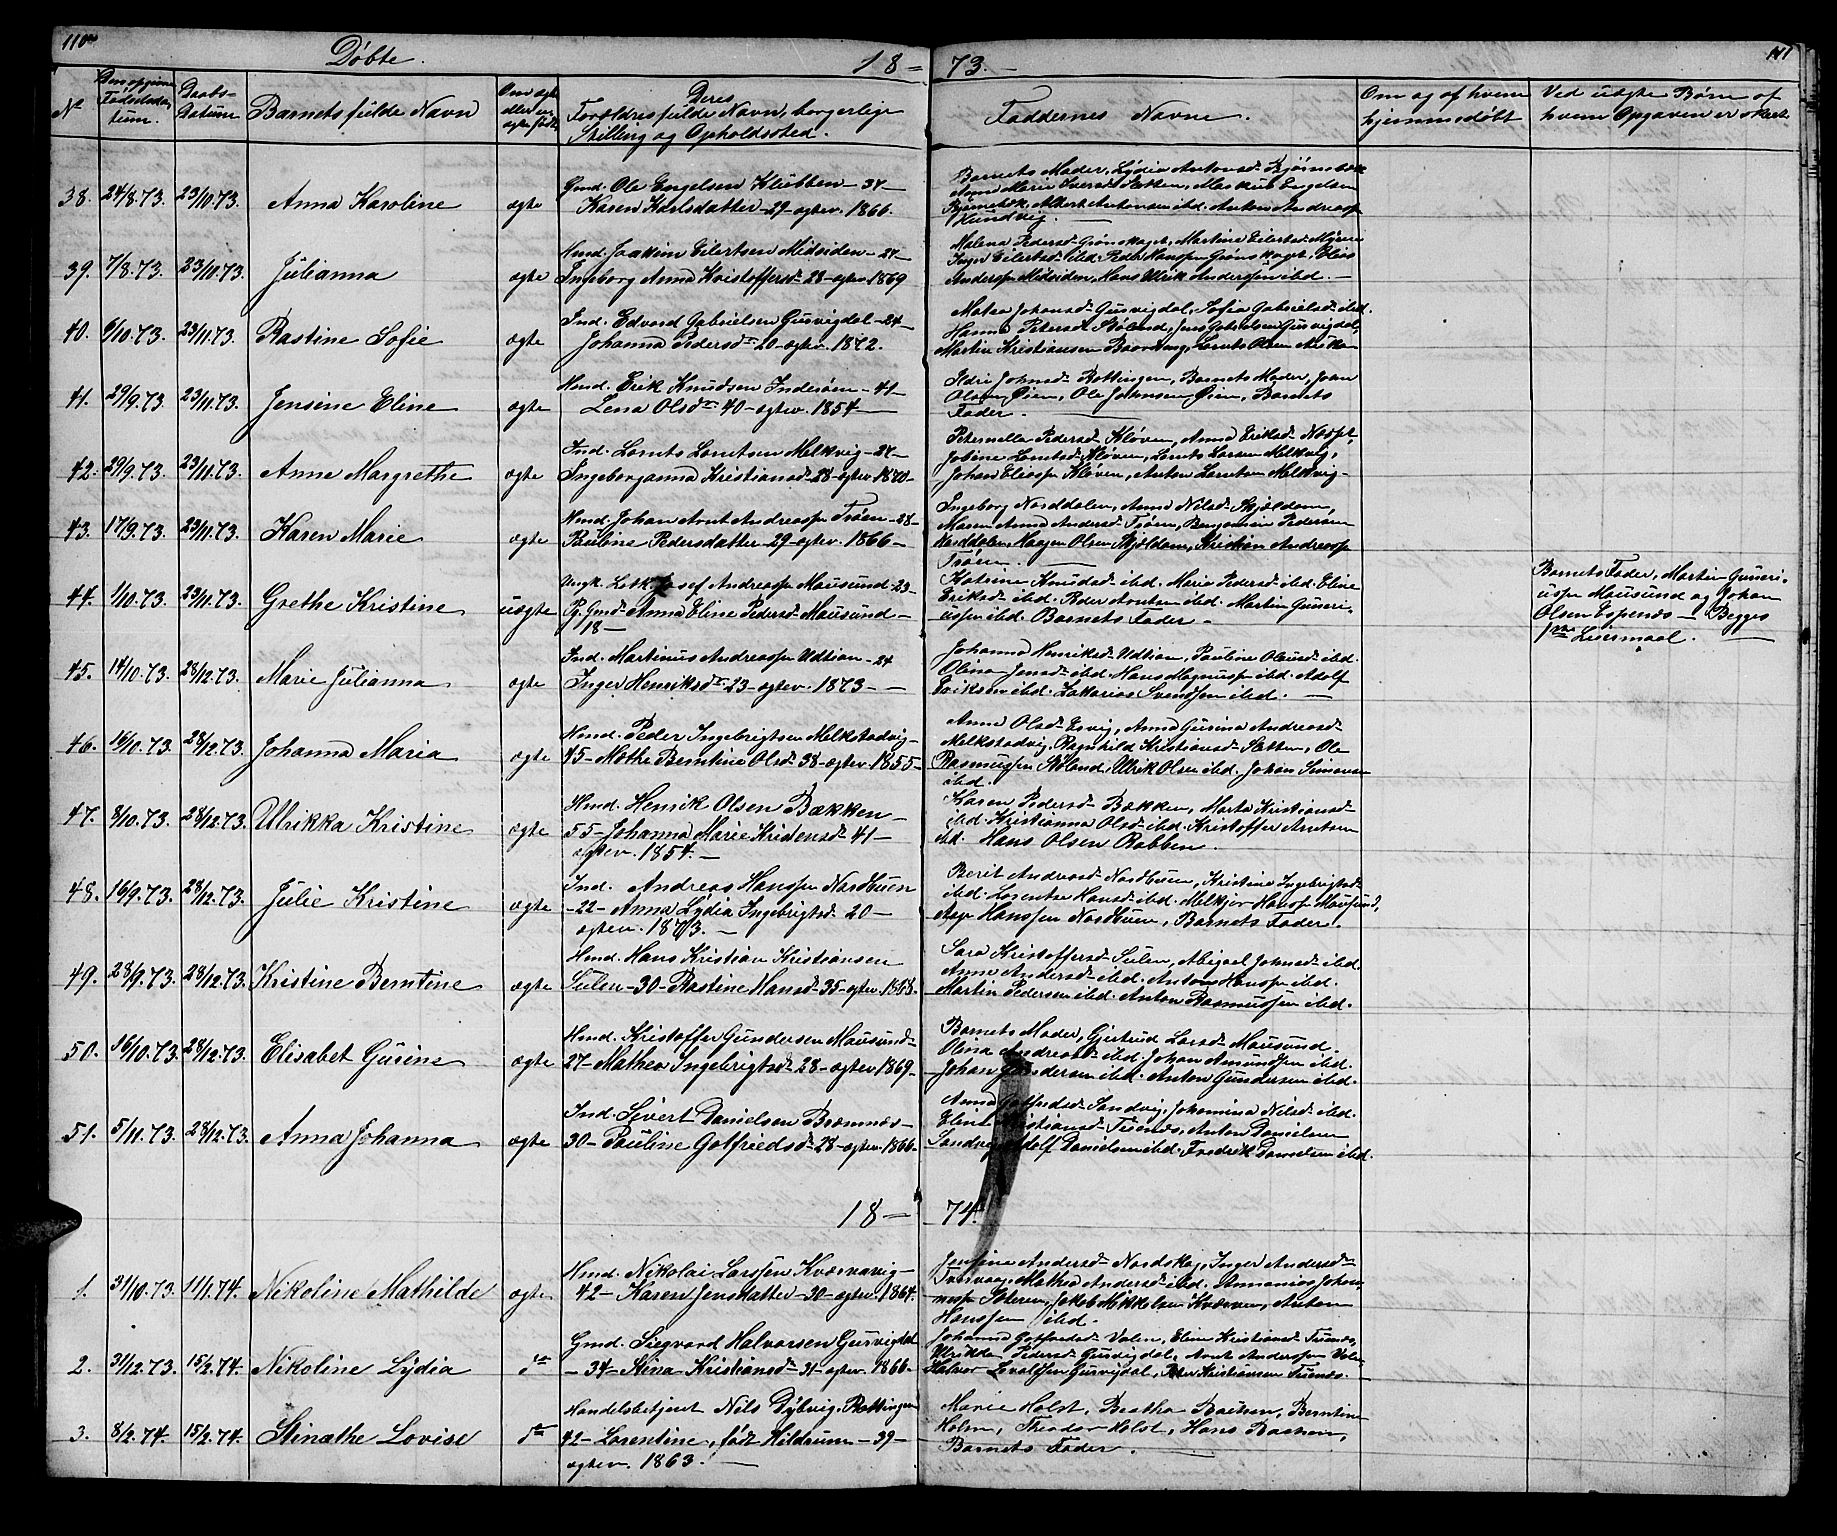 110
Døbte.
18=
73.
111
No
Den opgivne Fødselsdatum.
Daabs-Datum
Barnets fulde Navn
Om ægte eller uægte født
Deres Forældres fulde Navn, borgerlige Stilling og Opholdssted.
Faddernes Navne.
Om og af hvem hjemmedøbt
Ved uægte Børn af hvem Opgaven er skeet
38. 24/8.73. 23/11.73. Anna Karoline ægte
Gmd. Ole Engelsen Klubben - 34 -
Karen Karlsdatter - 29 - ægtev. 1866.
Barnets Moder, Lydia Antonsd.
39. 7/8.73. 23/11.73. Julianna ægte
Hmd. Joakim Eilertsen Midsiden - 27 -
Ingeborg Anna Kristoffersd. 28 - ægtev. 1869
Malena Pedersd. Grønskaget, Martine Eilertsd.
Inger Eilertsd. ibd. Peder Hanssen Grønskaget, Elias
Anderssen Midsiden, Hans Ulrik Anderssen ibd. -
40. 6/10.73. 23/11.73. Rastine Sofie ægte
Ind. Edvard Gabrielsen Gusvigdal - 24 -
Johanna Pedersdr. 20 - ægtev. 1872.
Johansd. Gusvigdal, Sofia Gabrielsd. ibd.
Hanna Petersd. Støland, Jens Gabrielsen Gusvigdal,
Martin Kristiansen
41. 29/9.73. 23/11.73. Jensine Eline ægte
Hmd. Erik Knudsen Inderøen - 41 -
Lena Olsdr. 40 - ægtev. 1854 -
Johnsd. Rottingen, Barnets Moder, Joen
Olsen Øien, Ole Johnsen Øien, Barnets
Fader. -
42. 29/9.73. 23/11.73. Anne Margrethe ægte
Ind. Lornts Lorntsen Melkvig - 27 -
Ingeborganna Kristiansd. 28 - ægtev. 1870 -
Peternella Pedersd. Kløven, Anna Eriksd.
Lorntsd. Kløven, Lornts Larsen Melkvig,
Johan Eliassen Kløven, Anton Lorntsen Melkvig -
43. 17/9.73. 23/11.73. Karen Marie ægte
Hmd. Johan Arnt Andreassen Trøen - 28 -
Pauline Pedersdatter - 29 - ægtev. 1866 -
Ingeborg Norddalen, Anne Nilsd. Skjældam,
Maren Anna Andersd. Trøen, Benjamin Pedersen
Norddalen, Haagen Olsen Skjældam, Kristian Andreassen
Trøen. -
44. 1/10.73. 23/11.73. Grethe Kristine uægte
Ungk. Josef Andreassen Mausund - 23 -
Pg. Gmd. Anna Eline Pedersd. Mausund -
18 -
Katrine Knudsd. ibd. Maria Pedersd. ibd. Eline
Eriksd. ibd. Peder Arntsen ibd. Martin Guneriussen ibd. Barnets Fader. -
Barnets Fader, Martin Guneri-
ussen Mausund og Johan
Olsen Espenæs - Begges
1ste Leiermaal. -
45. 14/10.73. 28/12.73. Marie Julianna ægte
Ind. Martinus Andreassen Udtian - 24
Inger Henriksdr. 23 - ægtev. 1873 -
Johanna Henriksd. Udtian, Pauline Olausd. ibd.
Olina Jensd. ibd. Hans Magnussen ibd. Adolf
Eriksen ibd. Zakarias Svendsen ibd. -
46. 16/10.73. 28/12.73. Johanna Maria ægte
Hmd. Peder Ingebrigtsen Melkstadvig -
45 - Mathe Berntine Olsd. 38 - ægtev. 1855 -
Anna Olsd. Anna Gurina Andreasd.
Melkstadvig, Ragnhild Kristiansd. Sætten, Ole
Rasmussen Støland, Ulrik Olsen ibd. Johan Simonsen
ibd.
47. 8/10.73. 28/12.73. Ulrikka Kristine ægte
Hmd. Henrik Olsen Bækken -
55 - Johanna Marie 41 -
ægtev. 1854. -
Karen Pedersd. Bækken, Marta Kristiansd.
ibd. Kristianna Olsd. ibd. Kristoffer Arntsen
ibd. Hans Olsen Rabben.
48. 16/9.73. 28/12.73. Julie Kristine ægte
Ind. Andreas Hanssen Nordbuen
- 22 - Anna Lydia Ingebrigtsd. 20 -
ægtev. 1873. -
Berit Nordbuen, Kristine Ingebrigtsd.
ibd. Lorentse Hansd. ibd. Melkior Hanssen Mausund,
Hanssen Nordbuen, Barnets Fader.
49. 28/9.73. 28/12.73. Kristine Berntine ægte
Hmd. Hans Kristian Kristiansen
Sulen - 30 - Rastine Hansd. 35 - ægtev. 1868.
Sara Kristoffersd. Sulen, Abigael Johnsd. ibd.
Anne Andersd. ibd. Anton Hanssen ibd.
Martin Pedersen ibd. Anton Rasmussen ibd.
50. 16/10.73. 28/12.73. Elisabet Gurine ægte
Hmd. Kristoffer Gundersen Mausund -
27 - Mathea Ingebrigtsd. 28 - ægtev. 1869 -
Barnets Moder, Gjertrud Larsd. Mausund.
Olina Andreasd. ibd. Johan Amundsen ibd.
Johan Gundersen ibd. Anton Gundersen ibd.
51. 5/11.73. 28/12.73. Anna Johanna ægte
Ind. Sivert Danielsen Bremnes -
30 - Pauline Gotfriedsd. 28 - ægtev. 1866 -
Anna Gotfredsd. Sandvig, Johanna Nilsd. ibd.
Eline Kristiansd. Tuenæs, Anton Danielsen
Sandvig, Adolf Danielsen ibd. Fredrik Danielsen ibd.
18 -
74.
1. 31/10.73. 11/1.74. Nikoline Mathilde ægte
Hmd. Nikolai Larssen Kværnavig -
42 - Karen Jensdatter - 30 - ægtev. 1864.
Jensine Andersd. Nordskag, Inger Andersd.
Andersd. ibd. Annanias Johan-
nessen Jakob Mikkelsen Kværnen, Anton
Hanssen ibd.
2. 31/12.73. 15/2.74. Nikoline Lydia do
Gmd. Siegvard Halvorsen Gusvigdal
- 34 - Stina Kristiansd. - 31 - ægtev. 1866.
Johanna Gotfredsd. Valen, Eline Kristiansd. Tuenæs,
Ulrikka Pedersd. Gusvigdal, Arnt Anderssen Valen
Halvor Gusvigdal, Peter Kristiansen Tuenæs.
3. 8/2.74. 15/2.74. Stinathe Lovise do
Handelsbetjent Nils Dybvig, Rottingen
42 - Lorentine, født Hildrum - 39 -
ægtev. 1863. -
Marie Holst, Beatha Bachen, Berntine
Holm, Theodor Holst, Hans Bachen,
Barnets Fader. -